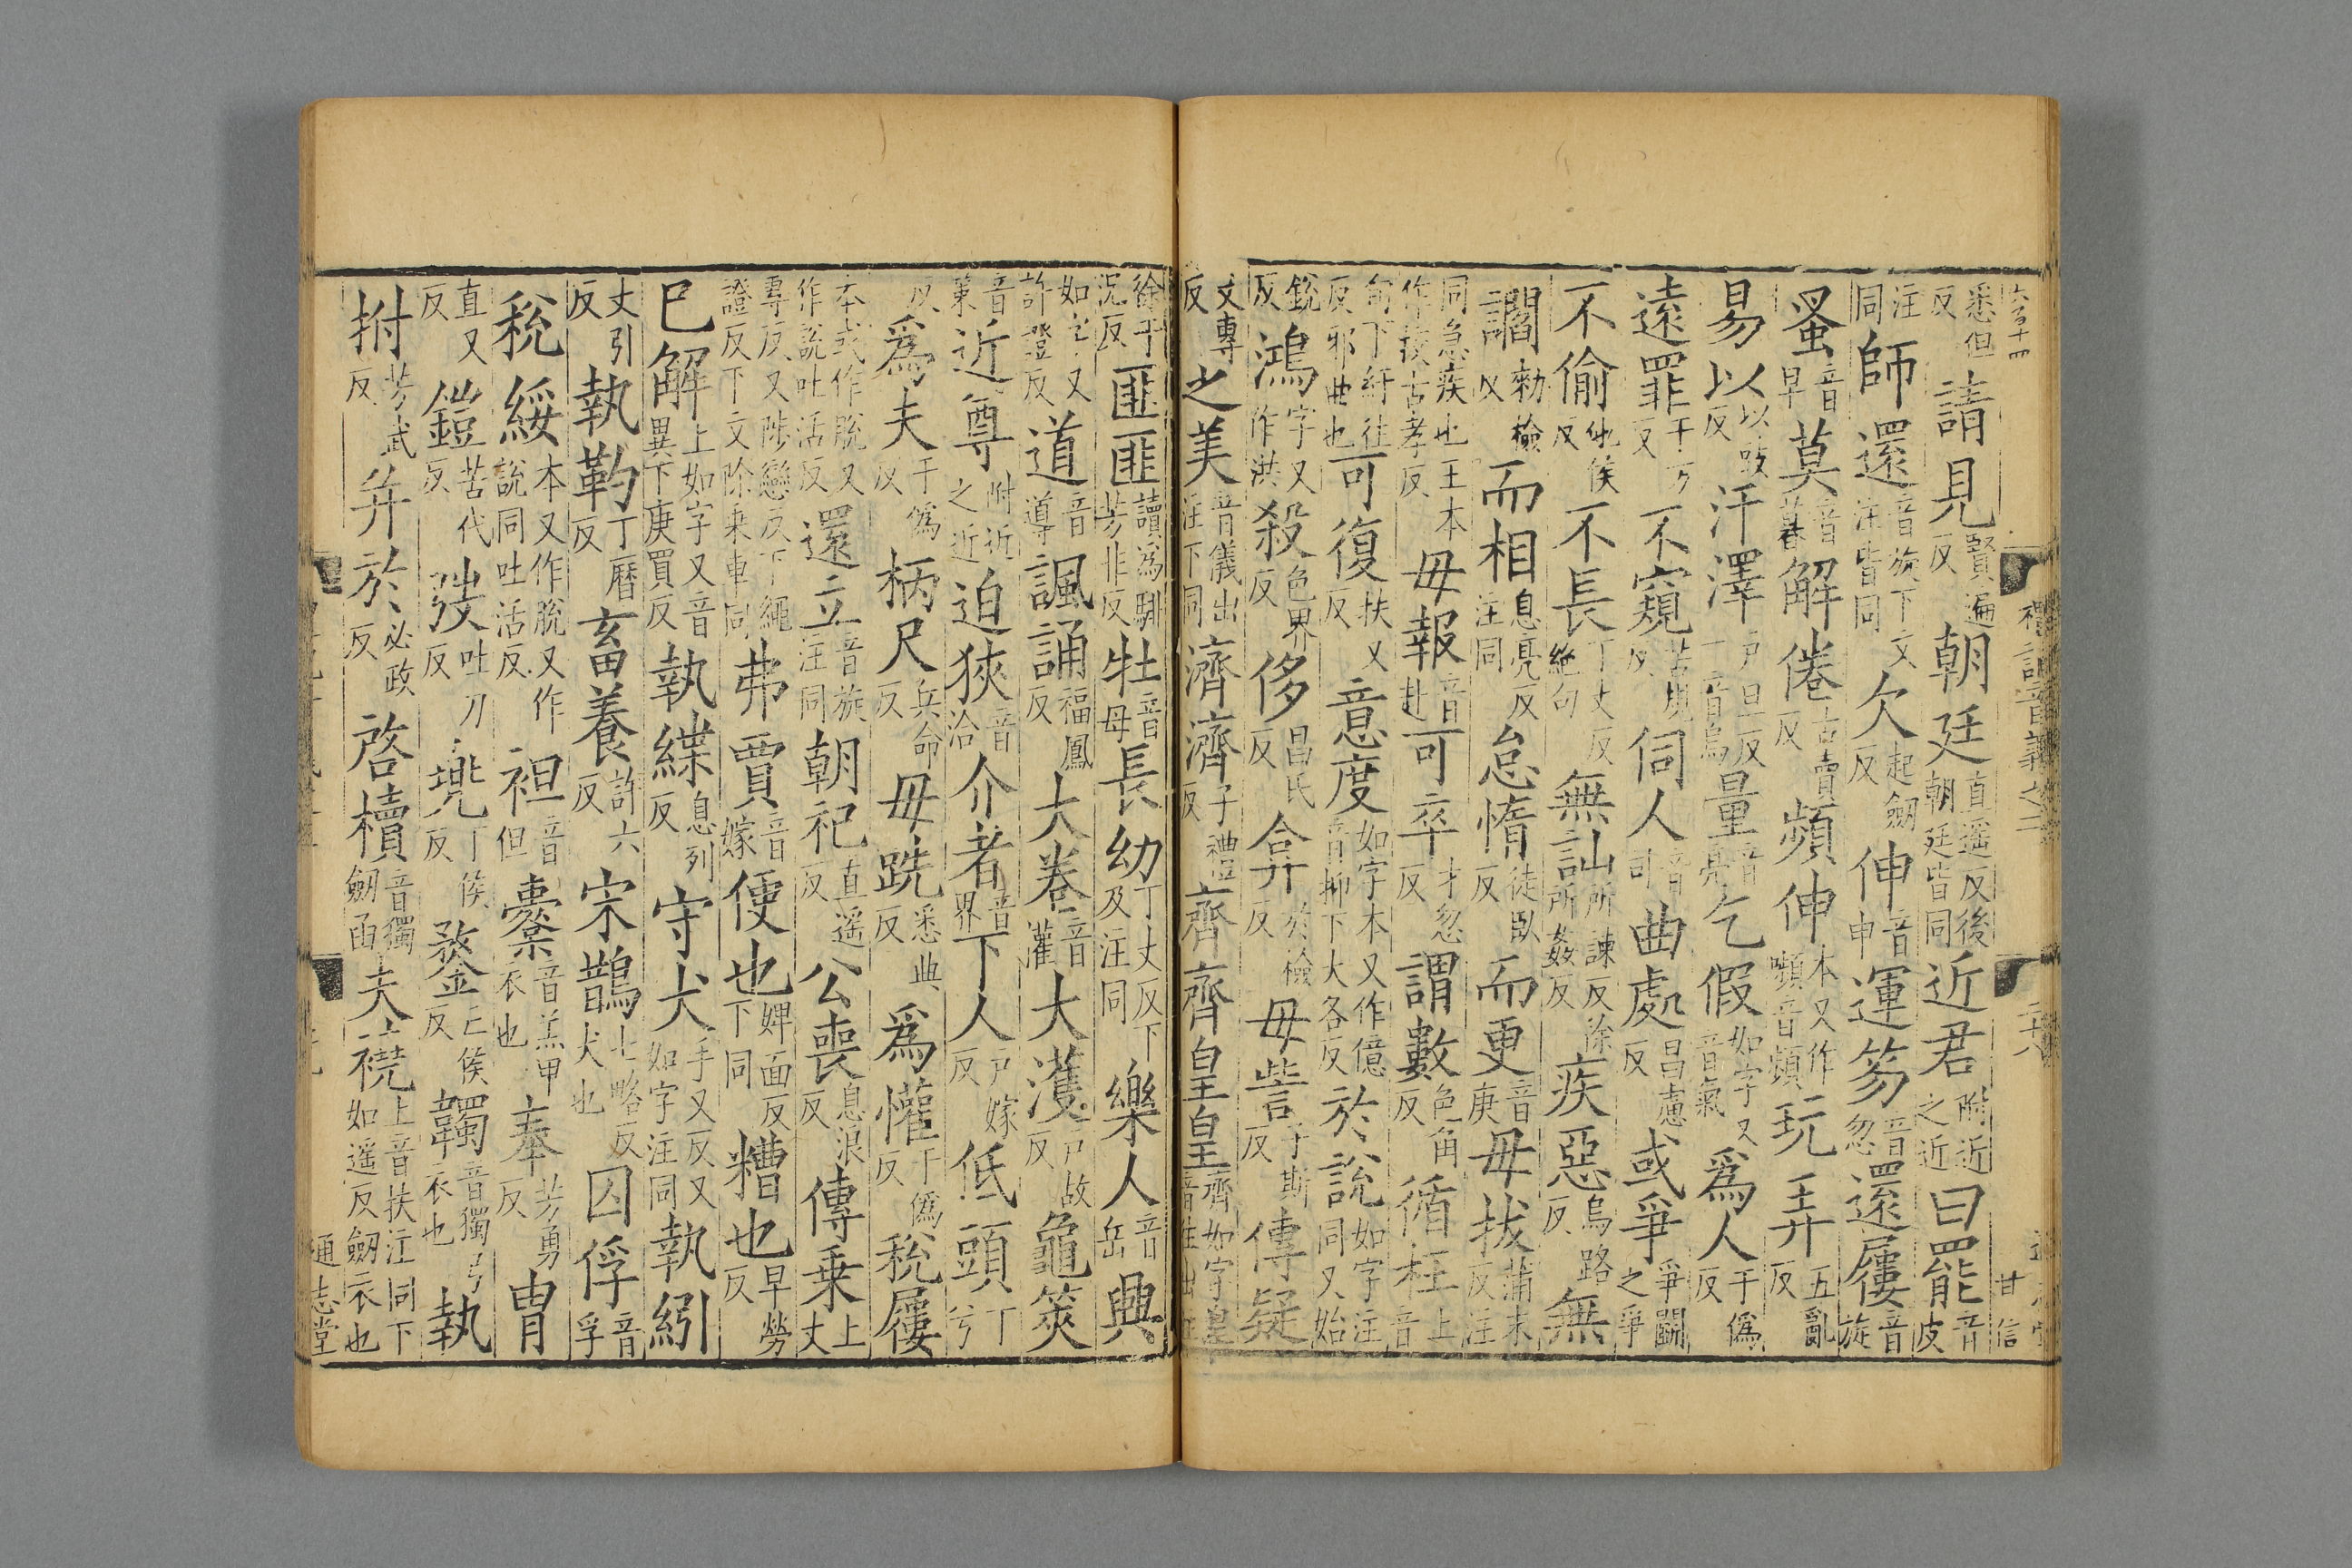 悉但反請見賢遍反朝廷直遥反後朝廷皆同近君附近之近曰罷音皮
注同師還音旋下文注皆同欠起劒反伸音申運笏音忽還屨音旋
蚤音早莫音暮解倦古賣反頻伸本又作嚬音頻玩弄五亂反
易以以豉反汗澤戶旦反一音烏量音亮乞假如字又音氣爲人于僞反
遠罪于万反不窺苦規反伺人音司曲處昌慮反或爭爭鬭之爭
不偷他侯反不長丁丈反絶句無訕所諫反徐所姦反疾惡烏路反無
讇勑檢反而相息亮反注同怠惰徒臥反而更音庚毋拔蒲末反注
同急疾也王本作校古孝反毋報音赴可卒才忽反謂數色角反循枉上音
旬下紆往反邪曲也可復扶又反意度如字本又作億音抑下大各反於說如字注同又始
銳反鴻字又作洪殺色界反侈昌氏反弇於檢反毋訾子斯反傳疑
丈專反之美音儀出注下同濟濟子禮反齊齊皇皇齊如字皇音往出注
徐于況反匪匪讀爲騑芳非反牡音母長幼丁丈反下及注同樂人音岳興
如字又許證反道音導諷誦福鳳反大卷音權大濩戶故反龜筴
音策近尊附近之近迫狹音洽介者音界下人戶嫁反低頭丁兮
反爲夫于僞反柄尺兵命反毋跣悉典反爲懽于僞反稅屨
本或作脫又作說吐活反還立音旋注同朝祀直遥反公喪息浪反傳乗上丈
專反又陟戀反下繩證反下文除乗車同弗賈音嫁便也婢面反下同糟也早勞反
已解上如字又音異下庚買反執緤息列反守犬手又反又如字注同執紖
丈引反執靮丁曆反畜養許六反宋鵲七略反犬也囚俘音孚
稅綏本又作脫又作說同吐活反袒音但櫜音羔甲衣也奉芳勇反冑
直又反鎧苦代反弢吐刀反兠丁侯反鍪亡侯反韣音獨弓衣也執
拊芳武反幷於必政反啓櫝音獨劒函夫襓上音扶注同下如遥反劒衣也